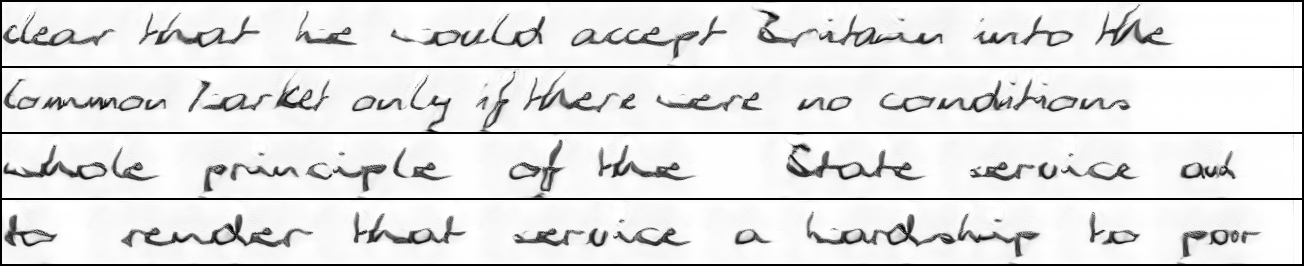 clear that he would accept Britain into the
Common Market only if there were no conditions
whole principle of the State service and
to render that service a hardship to poor